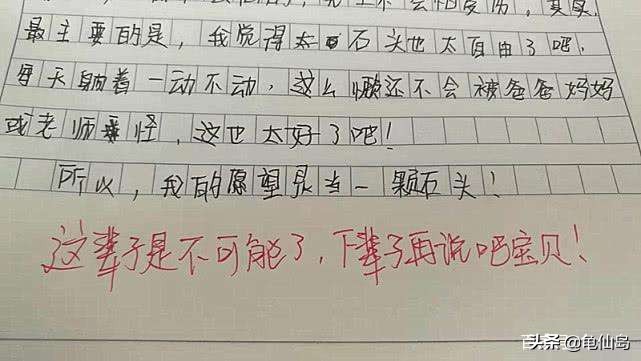 不会怕受伤，其实，
最主要的是，我觉得石头也太自由了吧，
每天躺着一动不动，这么懒还不会被爸爸妈妈
或老师责怪，这也太好了吧！
所以，我的愿望是当一颗石头！
这辈子是不可能了，下辈子再说吧宝贝！
头条@龟仙岛